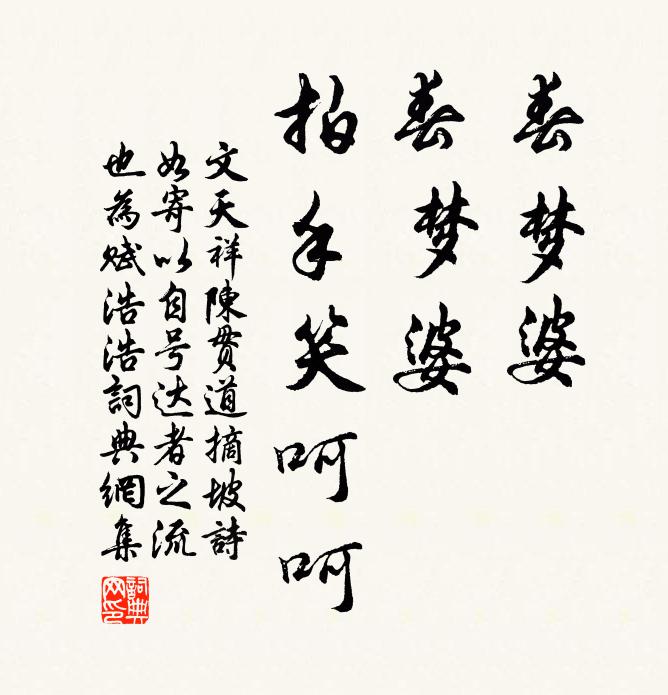 春梦婆
春梦婆
拍手笑呵呵
文天祥陳贯道摘坡詩
如寄以自号达者之流
也為赋浩浩詞典網集
詞典
网印